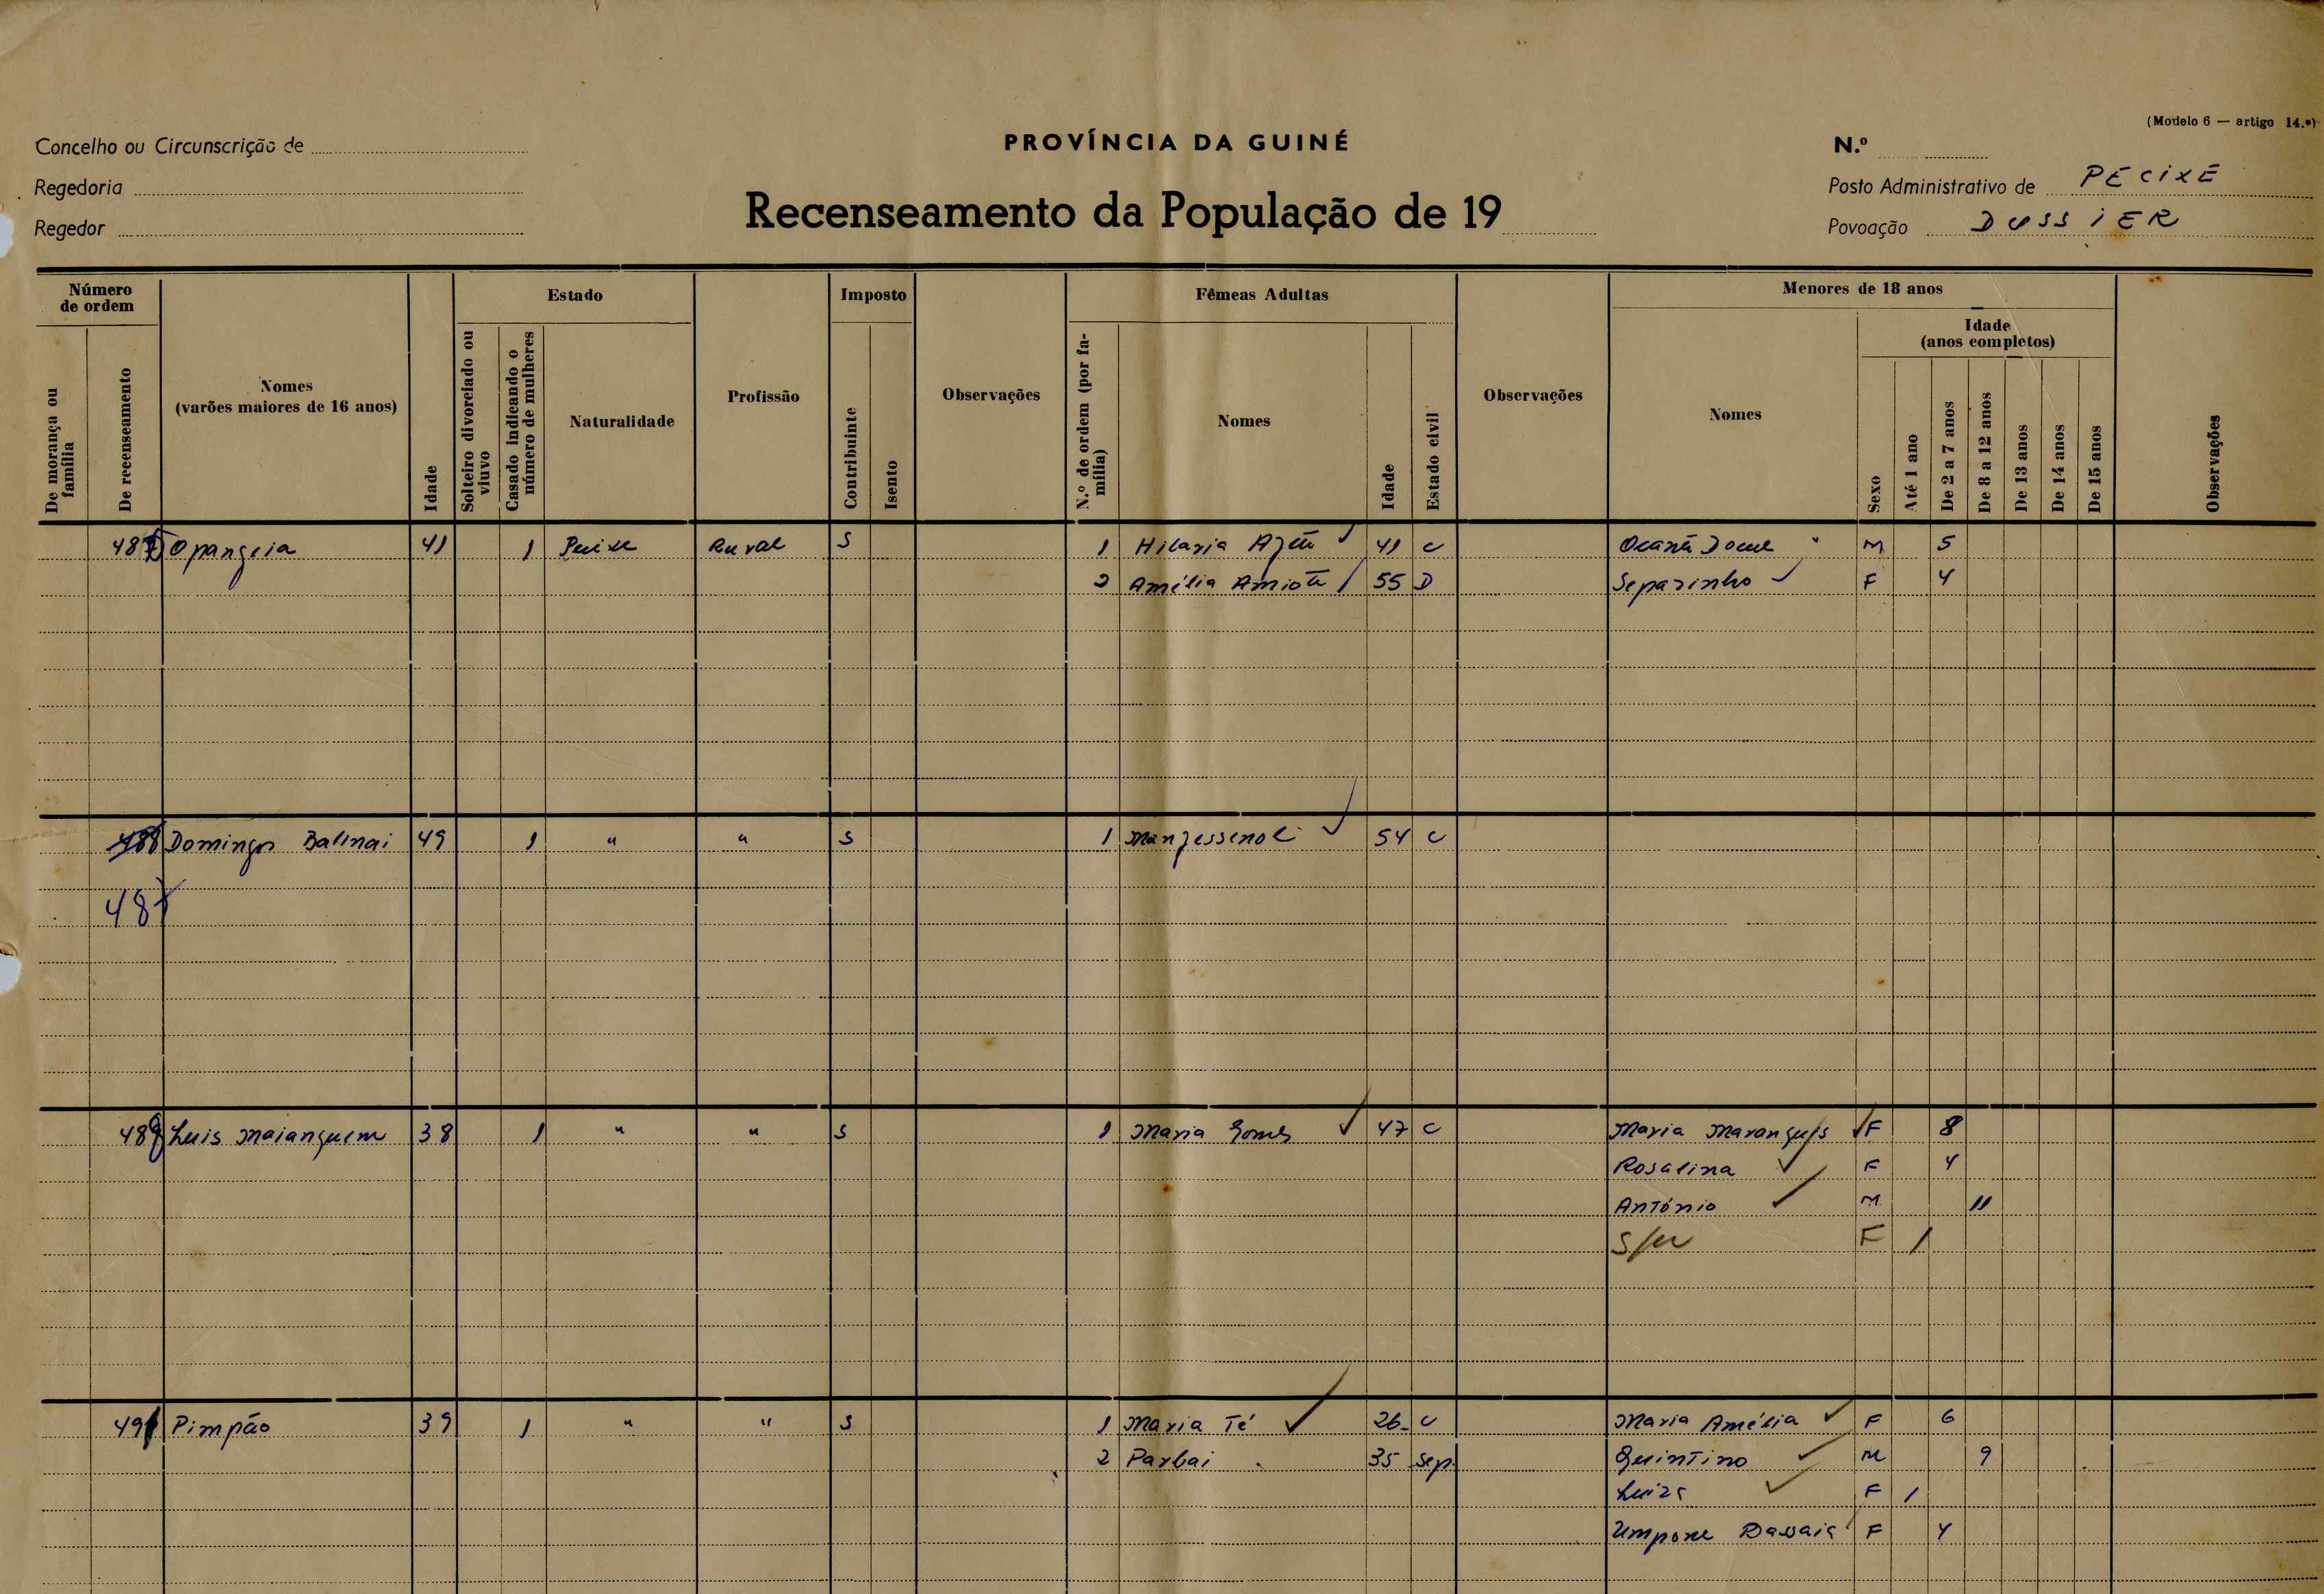 (Modelo 6 — artigo 14.º)
Concelho ou Circunscrição de
PROVÍNCIA DA GUINÉ
N.º
Regedoria
Posto Administrativo de PECIXE
Regedor
Recenseamento da População de 19
Povoação DUSSIER
Número de ordem
De morança ou família
De recenseamento
Nomes
(varões maiores de 16 anos)
Idade
Estado
Solteiro divorciado ou viuvo
Casado indicando o número de mulheres
Naturalidade
Profissão
Imposto
Contribuinte
Isento
Observações
Fêmeas Adultas
N.º de ordem (por família)
Nomes
Idade
Estado civil
Observações
Menores de 18 anos
Nomes
Sexo
Idade
(anos completos)
Até 1 ano
De 2 a 7 anos
De 8 a 12 anos
De 13 anos
De 14 anos
De 15 anos
Observações
Opangeia 41 1 Rural S 1 Hilaria 41 C M 5
2 Amélia Amiote 55 D Separinho F 4
488 Domingos Balinai 49 1 " " S 1 54 C
489 Luis Maianguem 38 1 " " S 1 Maria Gomes 47 C Maria F 8
Rosalina F 4
António M 11
S/N F 1
491 Pimpão 39 1 " " S 1 Maria Té 26 C Maria Amélia F 6
2 Parbai 35 Sep. Quintino M 9
Luiza F 1
F 4